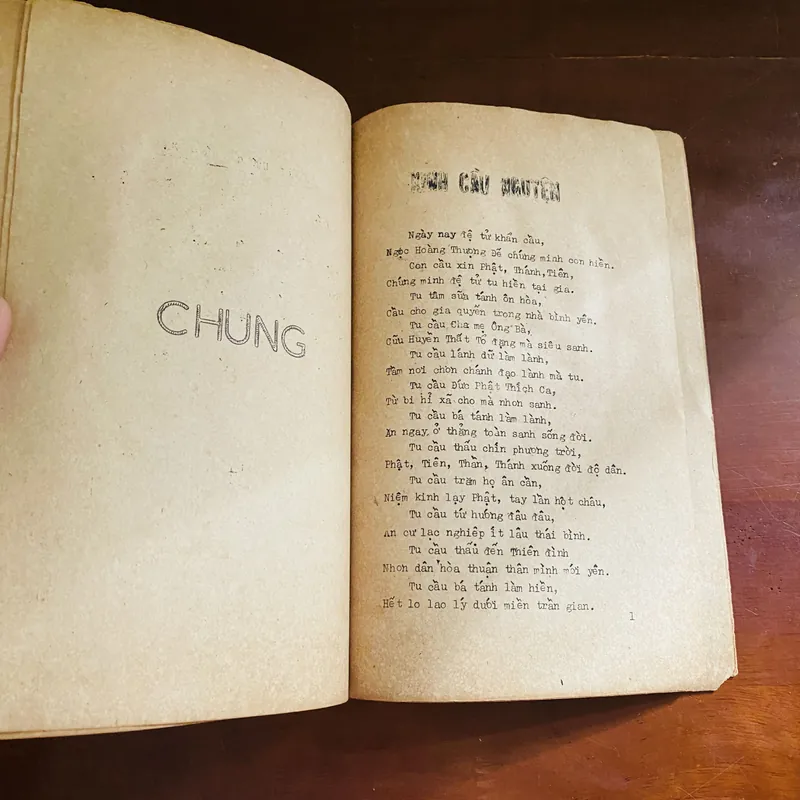 CHUNG
KINH CẦU NGUYỆN
Ngày nay đệ tử khẩn cầu,
Ngọc Hoàng Thượng Đế chứng minh con hiền.
Con cầu xin Phật, Thánh, Tiên,
Chứng minh đệ tử tu hiền tại gia.
Tu tâm sữa tánh ôn hòa,
Cầu cho gia quyến trong nhà bình yên.
Tu cầu Cha mẹ Ông Bà,
Cữu Huyền Thất Tổ đặng mà siêu sanh.
Tu cầu lánh dữ làm lành,
Tầm nơi chơn chánh đạo lành mà tu.
Tu cầu Đức Phật Thích Ca,
Từ bi hỉ xã cho mà nhơn sanh.
Tu cầu bá tánh làm lành,
Ăn ngay, ở thẳng toàn sanh sống đời.
Tu cầu thấu chín phương trời,
Phật, Tiên, Thần, Thánh xuống đời độ dân.
Tu cầu trăm họ ân cần,
Niệm kinh lạy Phật, tay lần hột châu,
Tu cầu tứ hướng đâu đâu,
An cư lạc nghiệp ít lâu thái bình.
Tu cầu thấu đến Thiên đình
Nhơn dân hòa thuận thân mình mới yên.
Tu cầu bá tánh làm hiền,
Hết lo lao lý dưới miền trần gian.
1